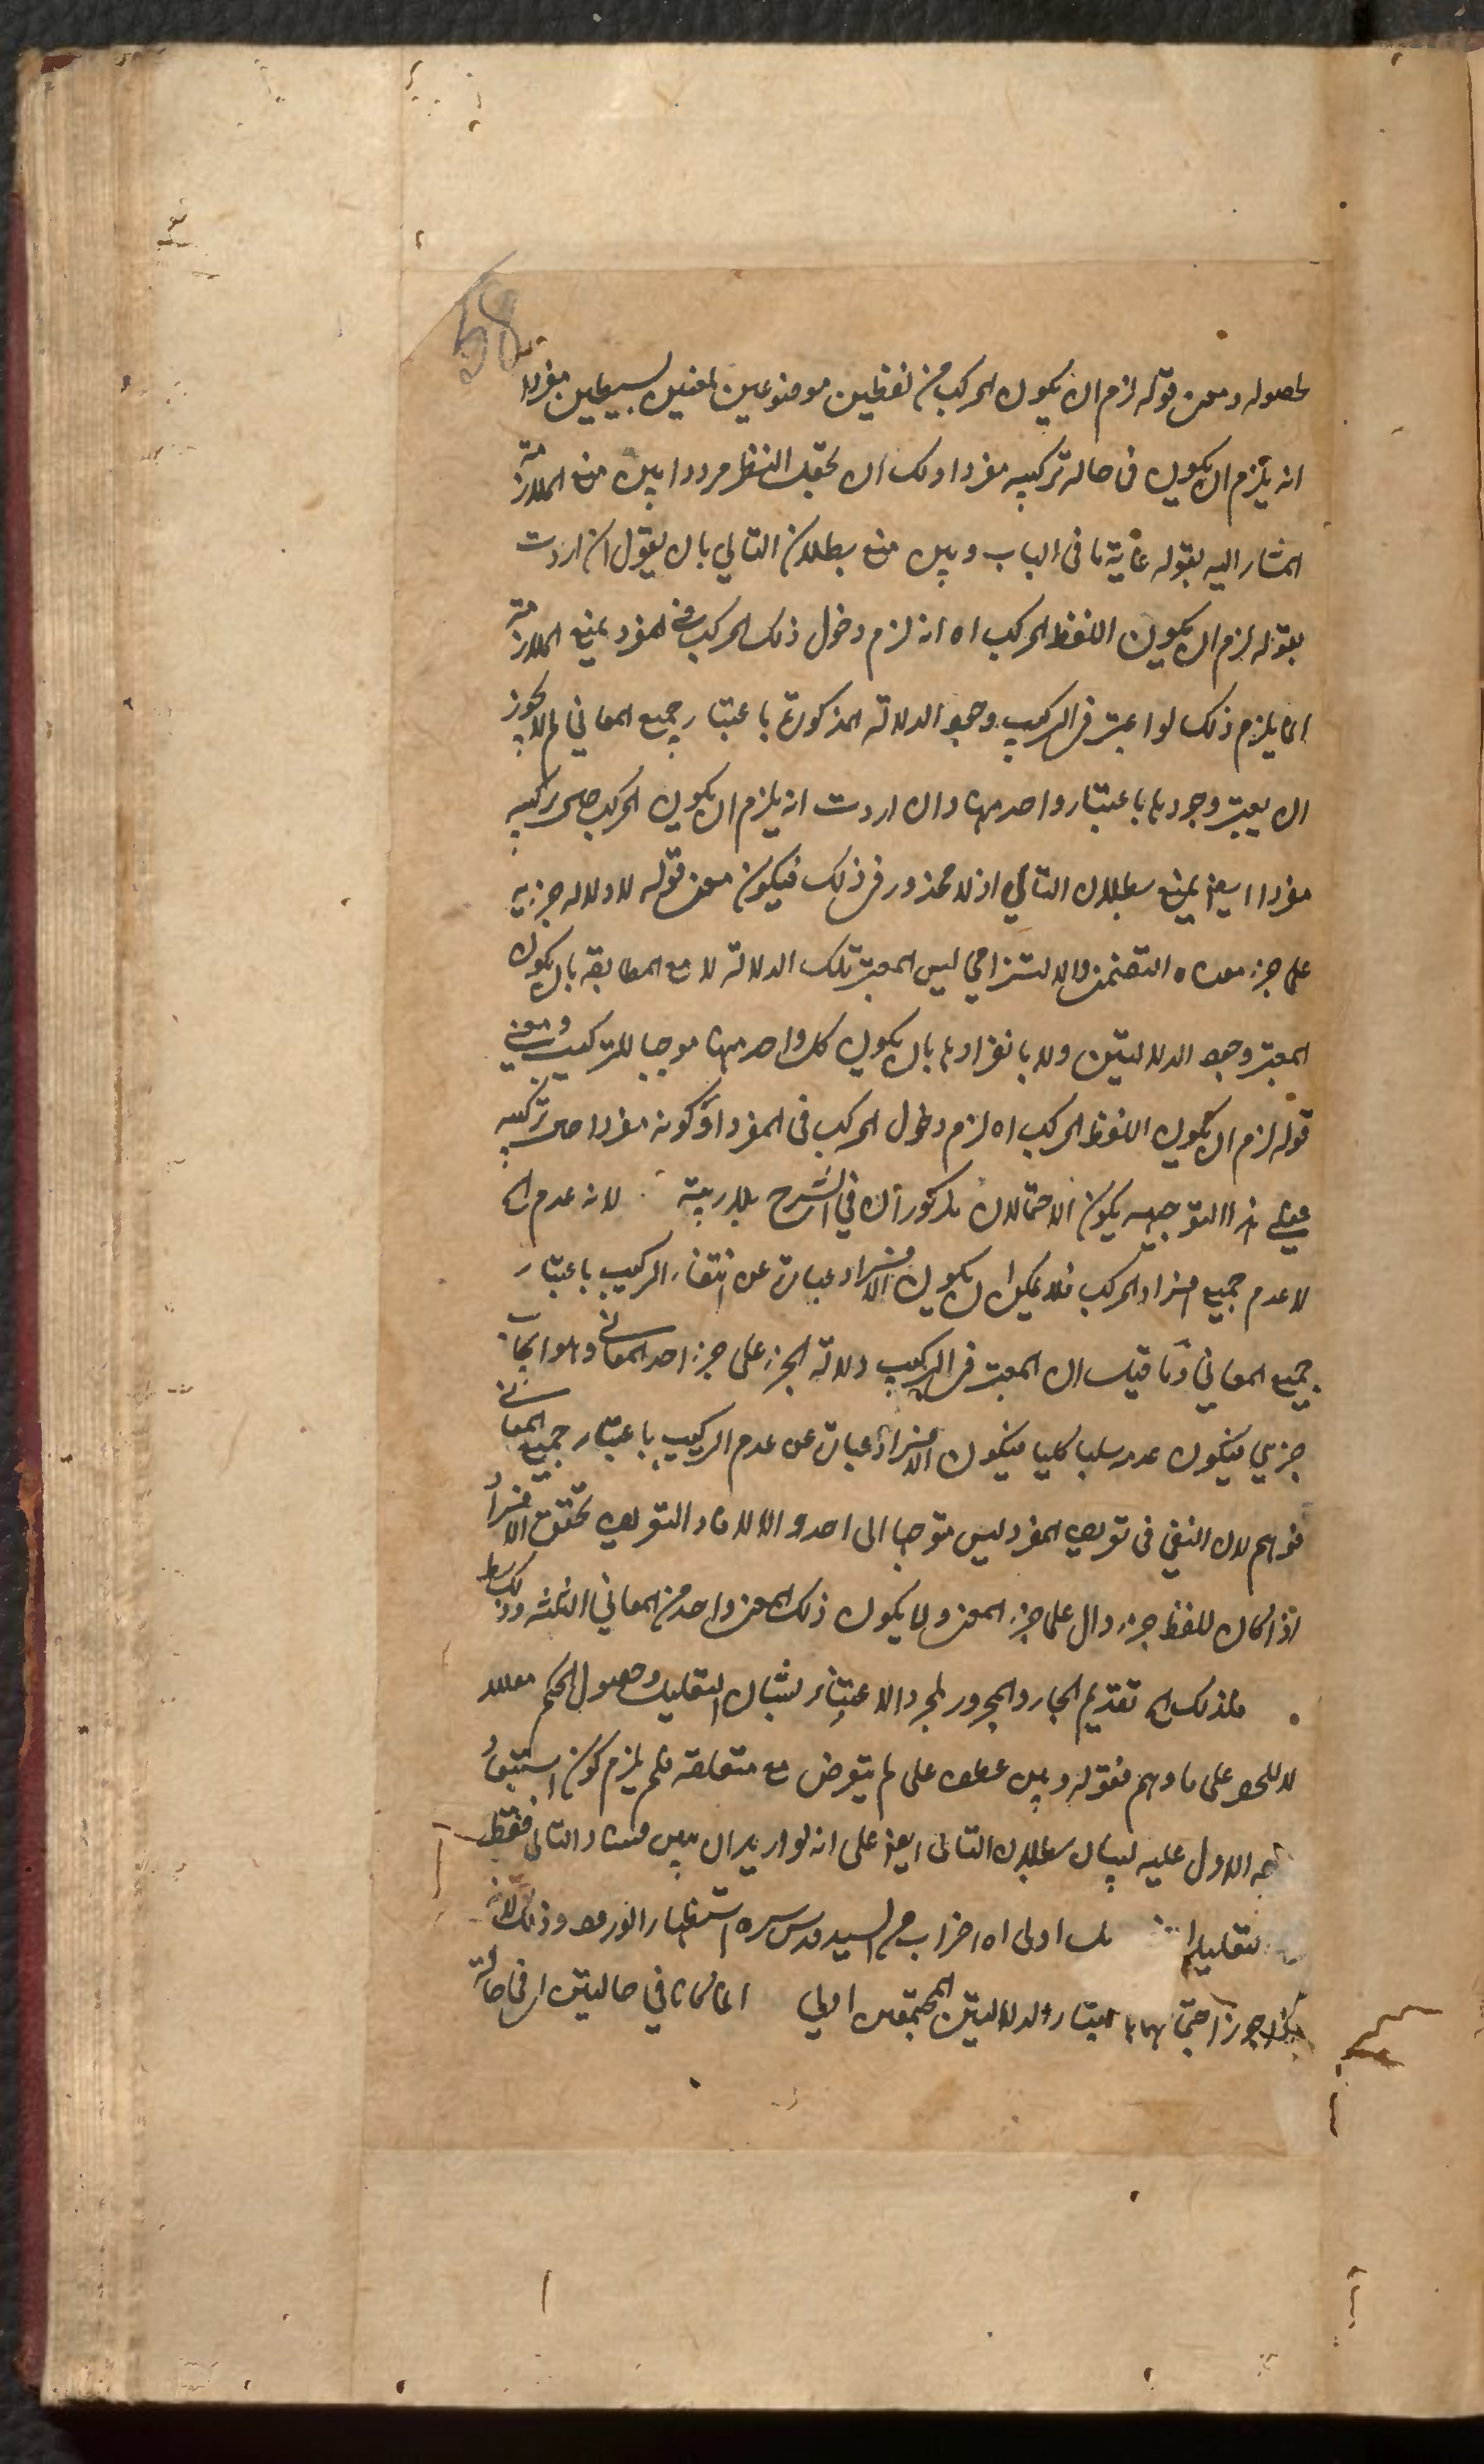 58
لحصوله ومعنى قوله لزم ان يكون المركب من لفظين موضوعين لمعنيين بسيطين مفردا
انه يلزم ان يكون فى حالة تركيبه مفردا ولك ان تجعل النظر مرددا بين منع الملازمة
المشار اليه بقوله غاية ما فى الباب وبين منع بطلان التالي بان يقول ان اردت
بقوله لزم ان يكون اللفظ المركب اه انه لزم دخول ذلك المركب فى المفرد يمنع الملازمة
انما يلزم ذلك لو اعتبر فى التركيب وجود الدلالة المذكورة باعتبار جميع المعاني لم لا يجوز
ان يعتبر وجودها باعتبار واحد منها وان اردت انه يلزم ان يكون المركب حين تركيبه
مفردا ايضا يمنع بطلان التالي اذ لا محذور فى ذلك فيكون معنى قوله لا دلالة جزئه
على جزء معناه التضمنى والالتزامي ليس المعتبر تلك الدلالة لا مع المطابقة بان يكون
المعتبر وجود الدلالتين ولا بانفرادها بان يكون كل واحد منها موجبا للتركيب ومعنى
قوله لزم ان يكون اللفظ المركب اه لزم دخول المركب فى المفرد او كونه مفردا حين تركيبه
فعلى هذا التوجيه يكون الاحتمالان مذكوران في الشرح بلا ريبة لانه عدم الخ
لا عدم جميع افراد المركب فلا يمكن ان يكون الافراد عبارة عن انتفاء التركيب باعتبار
جميع المعاني وما قيل ان المعتبر فى التركيب دلالة الجزء على جزء احد المعاني وهو ايجاب
جزئي فيكون عدمه سلبا كليا فيكون الافراد عبارة عن عدم التركيب باعتبار جميع المعاني
فوهم لان النفي فى تعريف المفرد ليس متوجها الى احد والا لافاد التعريف تحقق الافراد
اذا كان للفظ جزء دال على جزء المعنى ولا يكون ذلك المعنى واحد من المعاني الثلثة وذلك بط
فلذلك الخ تقديم الجار والمجرور لمجرد الاعتناء بشان التعليل وحصول الحكم معللا
لا للحصر على ما وهم فقوله وبين عطف على لم يتعرض مع متعلقه فلم يلزم كون استبعاد
الاول عليه لبيان بطلان التالى ايضا على انه لو اريد ان يبين فساد التالى فقط
تعليلا اولى اه اضراب من السيد قدس سره استظهار وذلك لانه
جوز اجتماعهما باعتبار الدلالتين المجتمعين اولى اما كانا في حالتين اى فى حالة